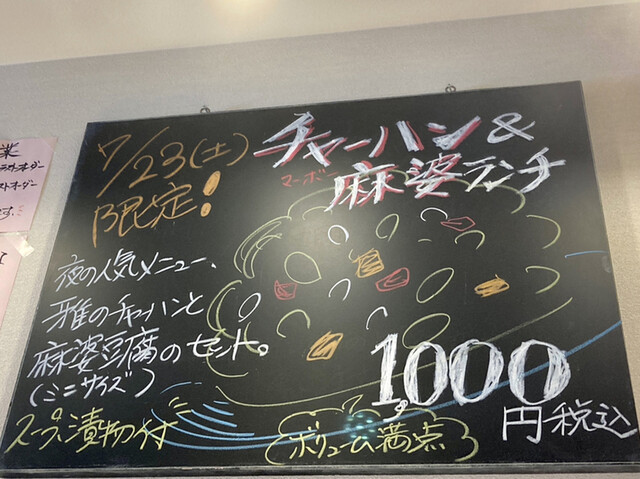 7/23(土)
限定!
チャーハン&
マーボー
麻婆ランチ
夜の人気メニュー、
雅のチャーハンと
麻婆豆腐のセット。
(ミニサイズ)
スープ、漬物付
ボリューム満点
1,000
円税込
業
ラストオーダー
ストオーダー
です。